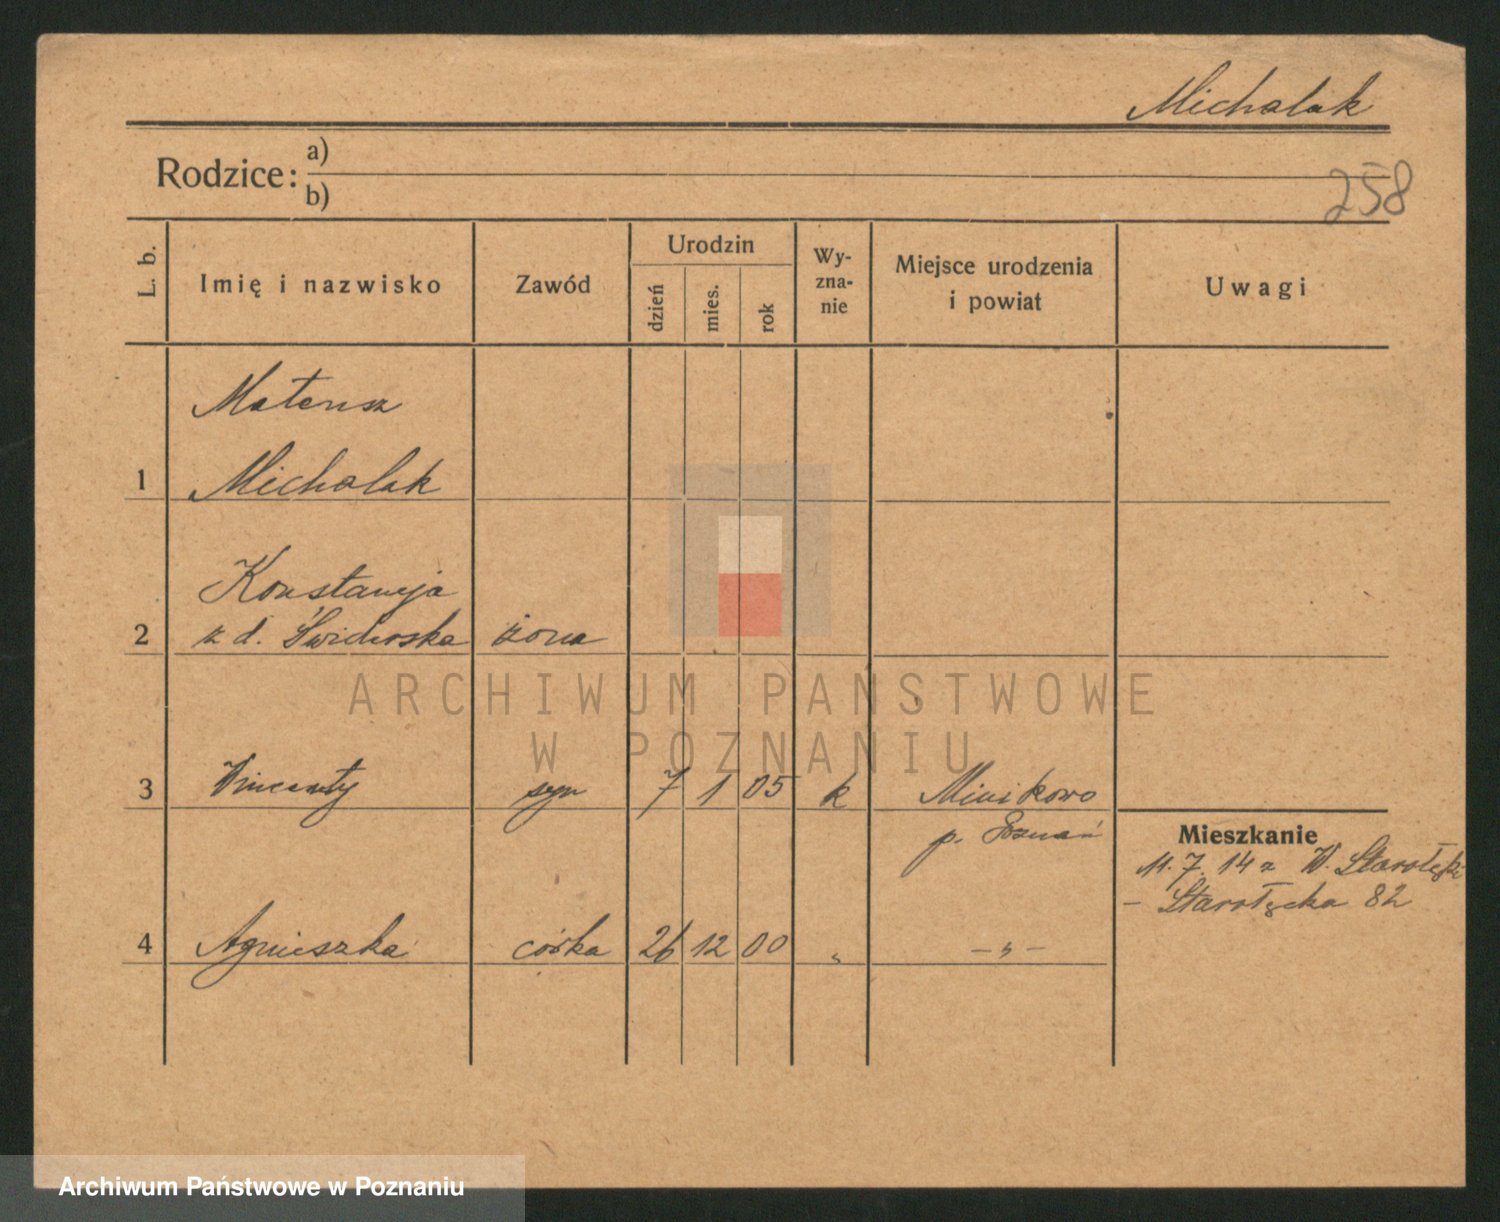 Michalak
Rodzice: a)
b)
258
L. b.
Imię i nazwisko
Zawód
Urodzin
dzień
mies.
rok
Wy-
zna-
nie
Miejsce urodzenia
i powiat
Uwagi
Mateusz
1 Michalak
Konstancja
2 z d. żona
3 Wincenty syn 7 1 05 k Minikowo
p. Poznań
Mieszkanie
11. 7. 14 z W. Starołęki
– Starołęcka 82
4 Agnieszka córka 26 12 00 " – " –
ARCHIWUM PAŃSTWOWE
W POZNANIU
Archiwum Państwowe w Poznaniu